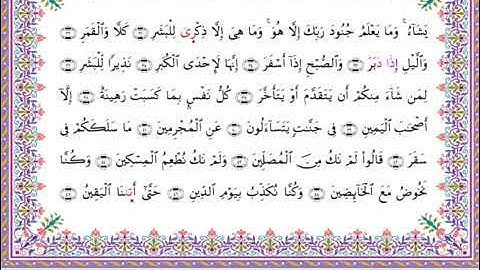 يَشَآءُ ۚ وَمَا يَعْلَمُ جُنُودَ رَبِّكَ إِلَّا هُوَ ۚ وَمَا هِىَ إِلَّا ذِكْرَىٰ لِلْبَشَرِ كَلَّا وَٱلْقَمَرِ
وَٱلَّيْلِ إِذَا دَبَرَ وَٱلصُّبْحِ إِذَآ أَسْفَرَ إِنَّهَا لَإِحْدَى ٱلْكُبَرِ نَذِيرًا لِّلْبَشَرِ
لِمَن شَآءَ مِنكُمْ أَن يَتَقَدَّمَ أَوْ يَتَأَخَّرَ كُلُّ نَفْسٍۭ بِمَا كَسَبَتْ رَهِينَةٌ إِلَّآ
أَصْحَٰبَ ٱلْيَمِينِ فِى جَنَّٰتٍ يَتَسَآءَلُونَ عَنِ ٱلْمُجْرِمِينَ مَا سَلَكَكُمْ فِى
سَقَرَ قَالُوا۟ لَمْ نَكُ مِنَ ٱلْمُصَلِّينَ وَلَمْ نَكُ نُطْعِمُ ٱلْمِسْكِينَ وَكُنَّا
نَخُوضُ مَعَ ٱلْخَآئِضِينَ وَكُنَّا نُكَذِّبُ بِيَوْمِ ٱلدِّينِ حَتَّىٰٓ أَتَىٰنَا ٱلْيَقِينُ